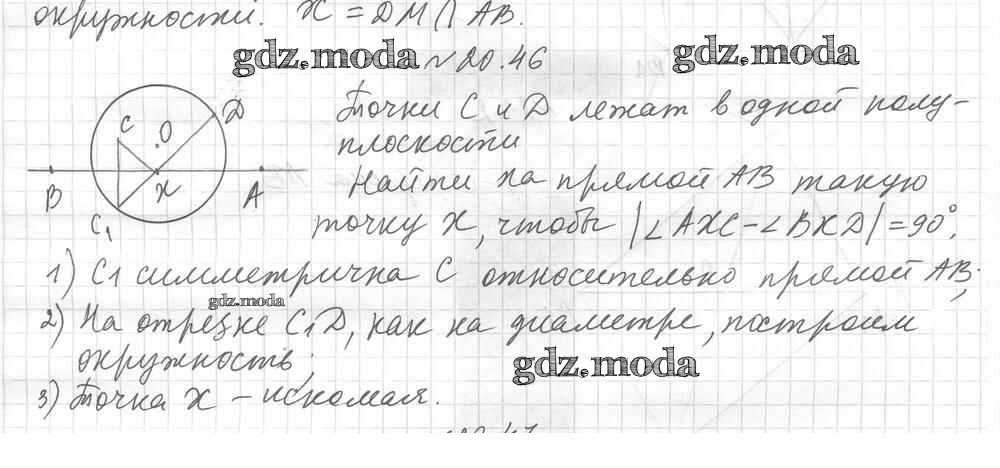 окружностей. X = DM ∩ AB.
gdz.moda
gdz.moda
№20.46
C
O
D
B
X
A
C₁
Точки C и D лежат в одной полу-
плоскости
Найти на прямой AB такую
точку X, чтобы |∠AXC-∠BXD|=90°.
1) C1 симметрична C относительно прямой AB;
gdz.moda
2) На отрезке C₁D, как на диаметре, построим
окружность;
gdz.moda
3) Точка X – искомая.